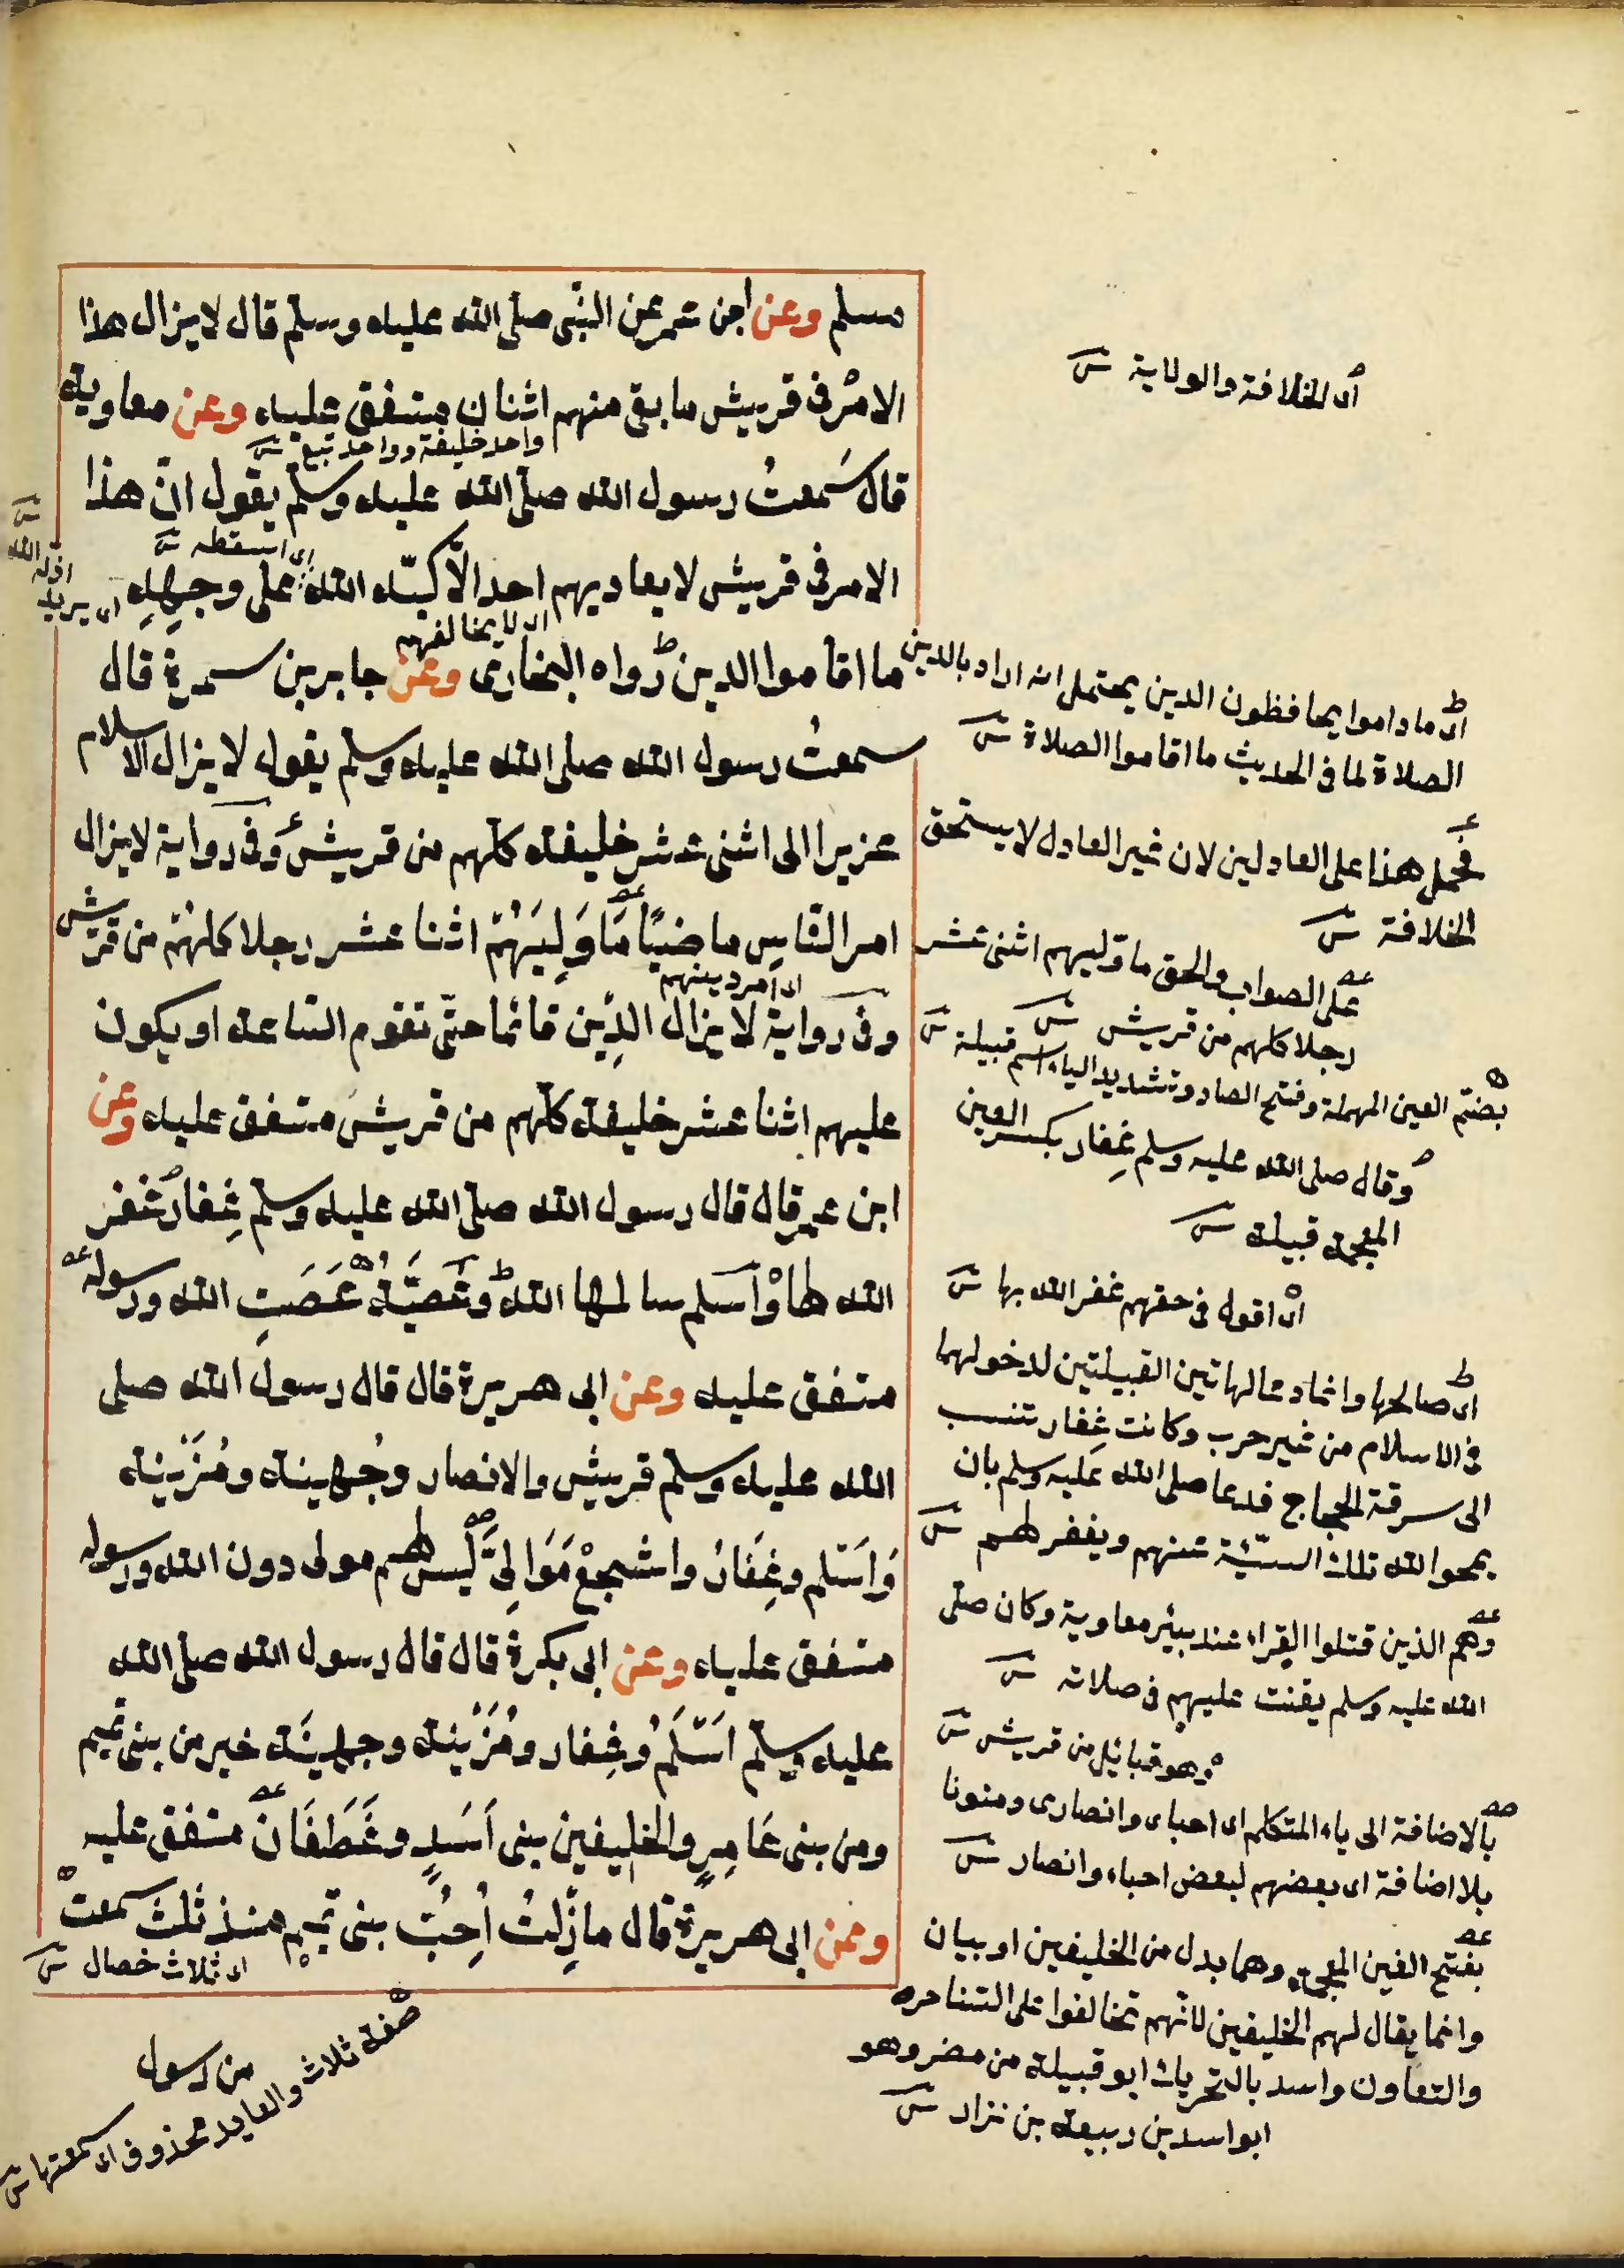 مسلم وعن ابن عمر عن النبي صلى الله عليه وسلم قال لا يزال هذا
الامر فى قريش ما بقى منهم اثنان متفق عليه وعن معاوية
واحد خليفة وواحد تبع
قال سَمعتُ رسول الله صلى الله عليه وسلم يقول انّ هذا
اى اسقطه
الامر فى قريش لا يعاديهم احد الّا كبّه الله على وجهِهِ
اى لا يخالفهم
ما اقاموا الدين رواه البخارى وعن جابر بن سمرة قال
سمعتُ رسول الله صلى الله عليه وسلم يقول لا يزال الاسلام
عزيزا الى اثنى عشر خليفة كلّهم من قريش وَفى رواية لا يزال
امر النّاسِ ماضيًا مَا وَلِيَهُمْ اثنا عشر رجلا كلهُم من قريش
اى امر دينهم
وفى رواية لا يزال الدِّين قائما حتّى تقوم السّاعة او يكون
عليهم اثنا عشر خليفة كلّهم من قريش متفق عليه وعن
ابن عمر قال قال رسول الله صلى الله عليه وسلم غِفارُ غفر
الله لها وأسلم سالمها الله وعُصَيَّةُ عَصَتِ الله ورسوله
متفق عليه وعن ابى هريرة قال قال رسول الله صلى
الله عليه وسلم قريش والانصار وجُهينة ومُزَيْنة
وَاَسْلم وغِفَارُ واشجعْ مَوَالِىَّ لَيس لهم مولى دون الله ورسوله
متفق عليه وعن ابى بكرة قال قال رسول الله صلى الله
عليه وسلم اَسْلَمُ وغِفار ومُزَيْنة وجهينَة خير من بنى تميم
ومن بنى عَامِرٍ والحليفين بنى اَسَدٍ وغَطَفَانَ متفق عليه
وعن ابى هريرة قال مازِلتُ اُحِبُّ بنى تميم منذ ثَلث سمعت
اى ثلاث خصال
من رسول
صفة ثلاث والعايد محذوف اى سمعتها
اى الخلافة والولاية
اى ما داموا يحافظون الدين يحتمل انه اراد بالدين
الصلاة لما فى الحديث ما اقاموا الصلاة
هذا على العادلين لان غير العادل لا يستحق
الخلافة
على الصواب والحق ما وليهم اثنى عشر
رجلا كلهم من قريش
بضم العين المهملة وفتح الصاد وتشديد الياء اسم قبيلة
وقال صلى الله عليه وسلم غِفار بكسر الغين
المعجمة قبيلة
اى اقول فى حقهم غفر الله بها
اى صالحها وانما دعا لهاتين القبيلتين لدخولهما
فى الاسلام من غير حرب وكانت غِفار تنسب
الى سرقة الحجاج فدعا صلى الله عليه وسلم بان
يمحوا الله تلك السيّئة عنهم ويغفر لهم
وهم الذين قتلوا القراء عند بيئر معاوية وكان صلى
الله عليه وسلم يقنت عليهم فى صلاته
وهو قبائل من قريش
بالاضافة الى ياء المتكلم اى احباى وانصارى ومنونا
بلا اضافة اى بعضهم لبعض احباء وانصار
بفتح الغين المعجمة وهما بدل من الحليفين او بيان
وانما يقال لهم الحليفين لانّهم تحالفوا على التناحر
والتعاون واسد بالتحريك ابو قبيلة من مضر وهو
ابو اسد بن ربيعة بن نزار